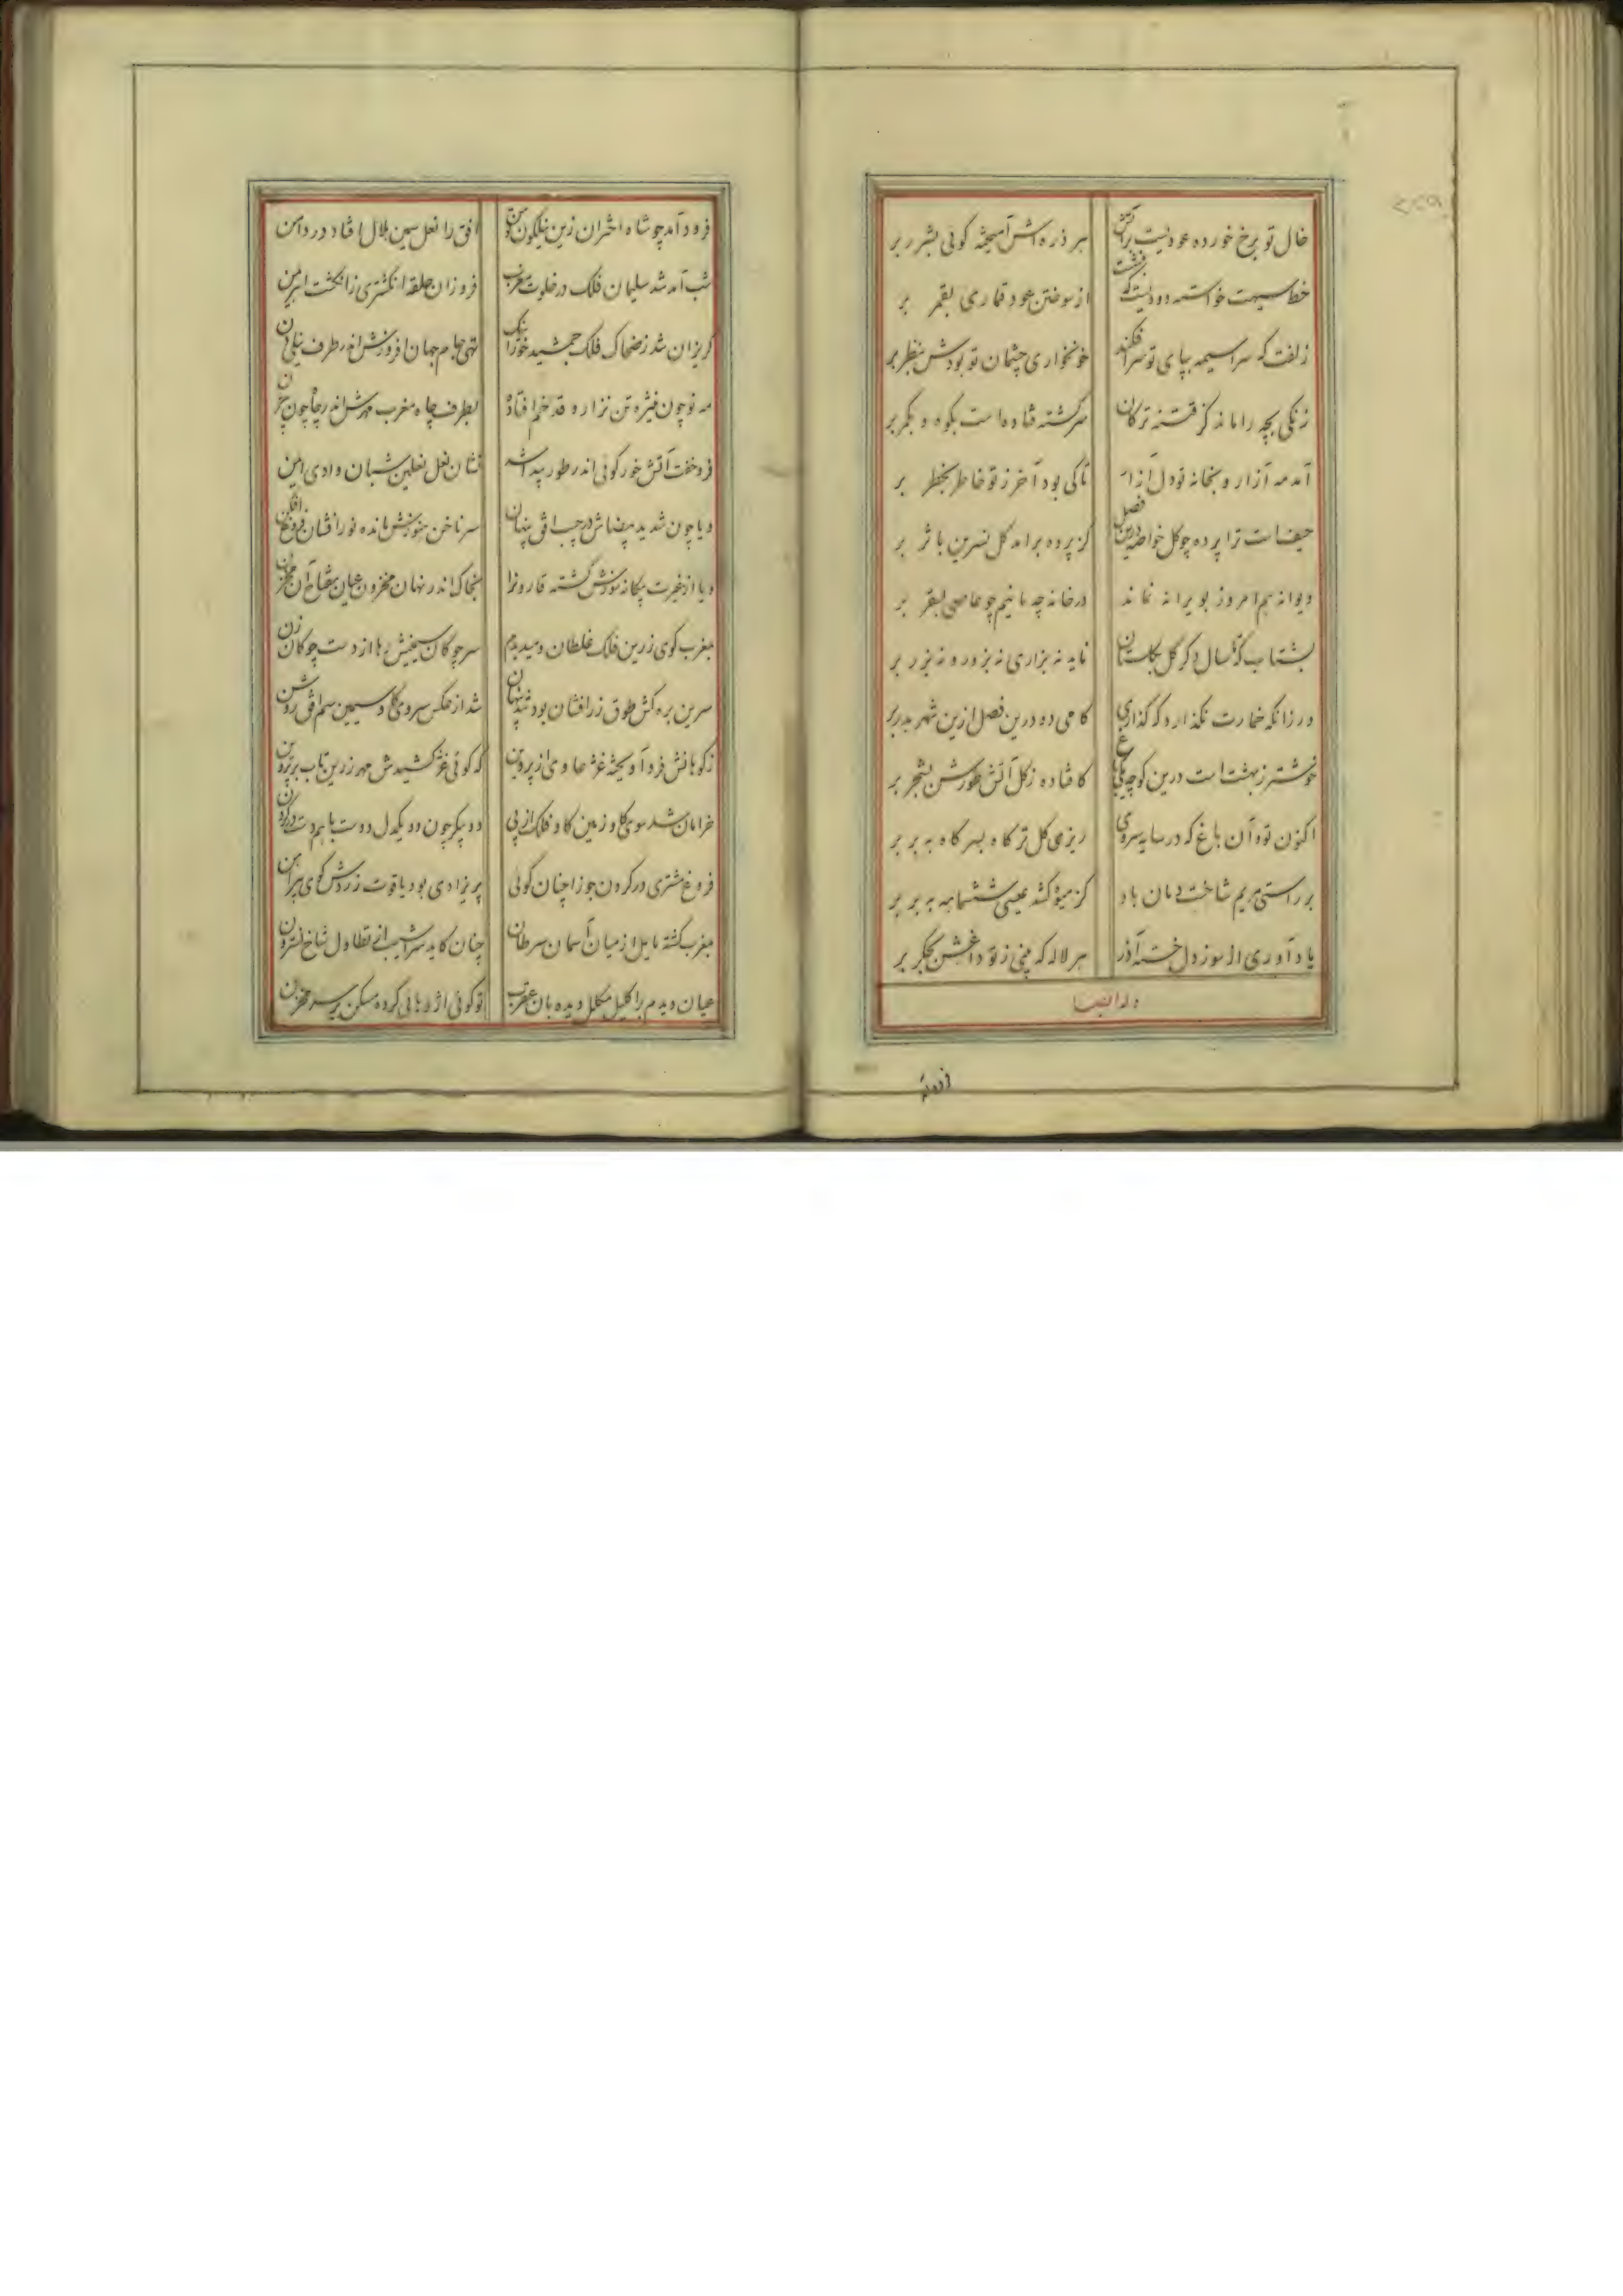 خال تو برخ خورده عودیست بر آتش
هر ذره اش آمیخته گوئی بشرر بر
خط سیهت خواسته دودیست که
از سوختن عود قماری بقمر بر
زلفت که سراسیمه بپای تو سر افکند
خونخواری چشمان تو بودش بنظر بر
زنکی بچه را ماند کز فتنه ترکان
سرکشته فتاده است بکوه و بکمر بر
آمد مه آزار و بتخانه تو دل آزار
تا کی بود آخر ز تو خاطر بخطر بر
حیف است ترا پرده چو کل خواصه درین فصل
کز پرده برامد کل نسرین باثر بر
دیوانه هم امروز بویرانه نماند
در خانه چه مانیم چو عاصی بسقر بر
بشتاب که تا سال دکر کل بکلستان
ناید نه بزاری نه بزور و نه بزر بر
ور زانکه خمارت نکذارد که کذاری
کامی ده درین فصل ازین شهر بدر بر
خوشتر ز بهشت است درین کوچه باغی
کافتاده ز کل آتش طورش بشجر بر
اکنون تو و آن باغ که در سایه سروی
ریزی کل تر کاه بسر کاه به بر بر
بر راستی مریم شاخت دمان باد
کز میوه کشد عیسی ششماهه به بر بر
یاد آوری از سوز دل خسته آذر
هر لاله که بینی ز تو داغش بجکر بر
وله ایضا
فرود
فرود آمد چو شاه اختران زین نیلکون توسن
افق را نعل سیمین هلال افتاد در دامن
شب آمد شد سلیمان فلک در خلوت مغرب
فروزان حلقه انکشتری ز انکشت اهریمن
کریزان شد ز ضحاک فلک جمشید خور اینک
تهی جام جهان افروزش اندر طرف نیلی دن
مه نو چون منیژه تن نزار و قد خم افتاده
بطرف چاه مغرب مهرش اندر چاه چون بیژن
فرو خفت آتش خور کوئی اندر طور پیدا شد
نشان نعل نعلین شبان وادی ایمن
و یا چون شد ید بیضاش در جیب افق پنهان
سر ناخن هنوزش مانده نور افشان
و یا از غیرت بیکانه نوزش کشته قارونرا
بخاک اندر نهان مخزون عیان مفتاح آن مخزن
بمغرب کوی زرین فلک غلطان و میدیدم
سر چوکان سیمینش رها از دست چوکان زن
سرین بره کش طوق زر افشان بود شد پنهان
شد از عکس سروی کاو سیمین سم افق روشن
ز کوهانش فرو آویخته غژغاوی از پروین
که کوئی غژ کشیدش مهر زرین تاب بر پرون
خرامان شد سوی کاو زمین کاو فلک از پی
دو پیکر چون دو یکدل دوست با هم دست در کردن
فروغ مشتری در کردن جوزا چنان کوئی
پریزادی بود یاقوت زردش کوی پیراهن
بمغرب کشته مایل از میان آسمان سرطان
چنان کاید سراشیب از تطاول شاخ نسترون
عیان دیدم بر اکلیل مکلل دیده بان عقرب
تو کوئی اژدهائی کرده مسکن بر سر مخزن